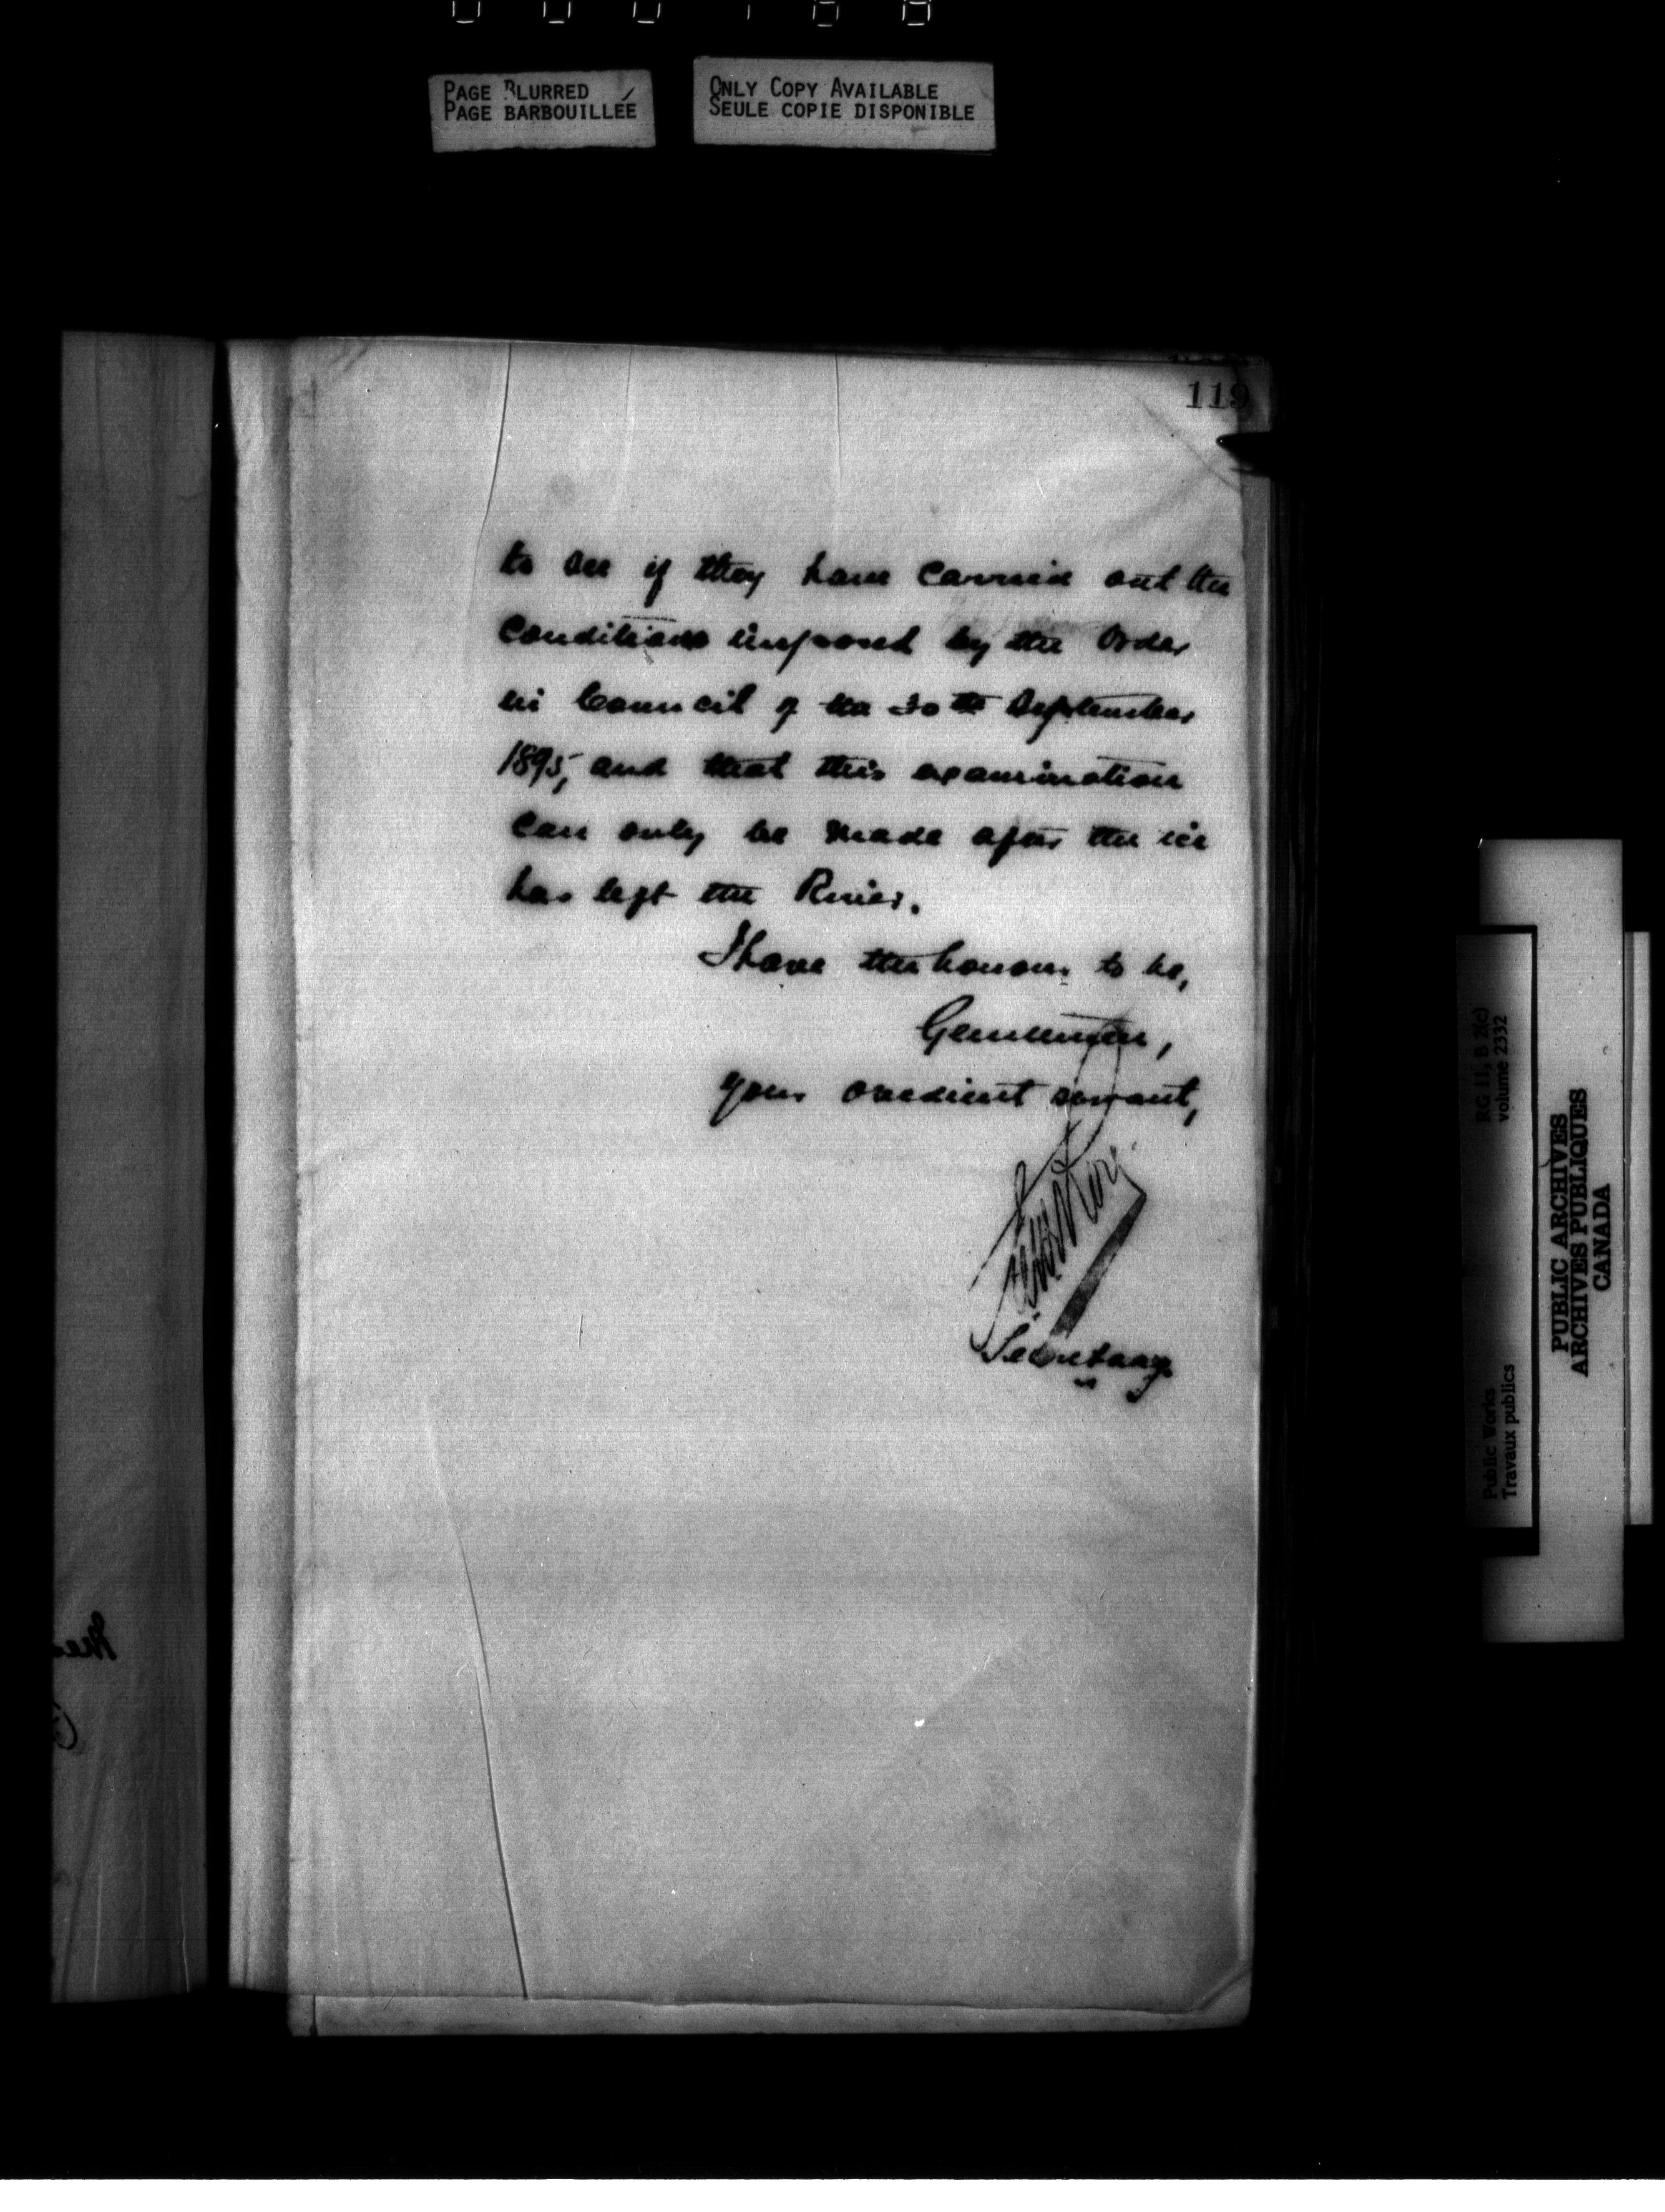 PAGE BLURRED
PAGE BARBOUILLÉE
ONLY COPY AVAILABLE
SEULE COPIE DISPONIBLE
119
to see if they have carried out the
conditions imposed by the Order
in Council of the 30th September
1895, and that this examination
can only be made after the ice
has left the River.
I have the honour to be,
Gentlemen,
your obedient servant,
Roy
Secretary
RG 11, B 2(c)
volume 2332
Public Works
Travaux publics
PUBLIC ARCHIVES
ARCHIVES PUBLIQUES
CANADA